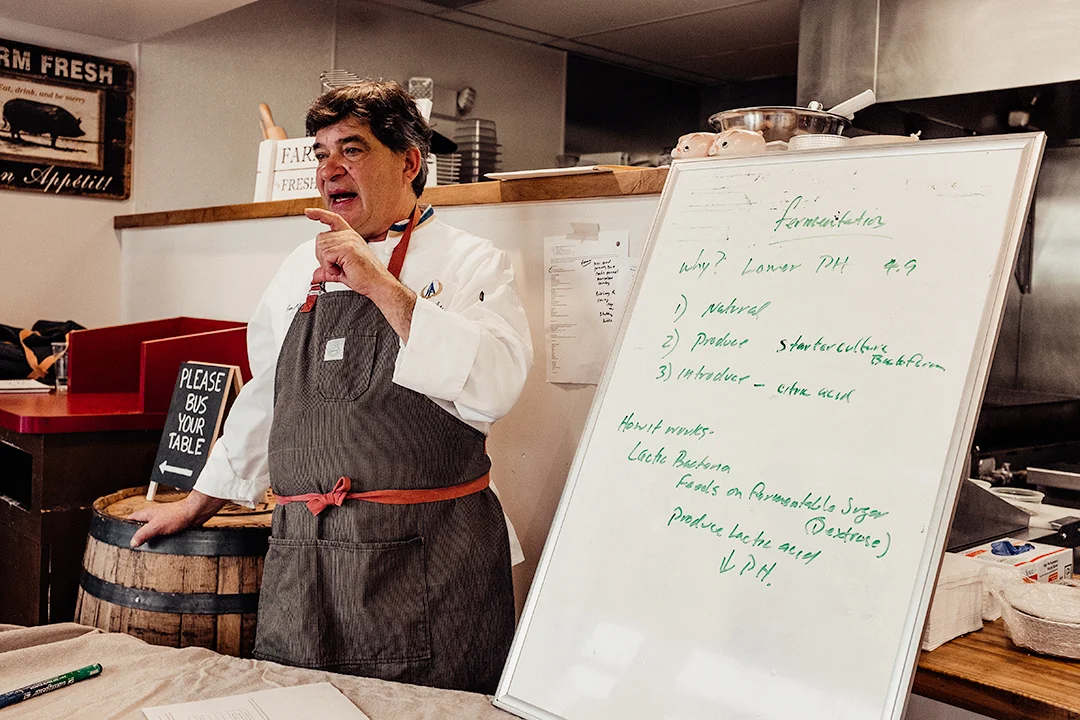 RM FRESH
Eat, drink, and be merry
n Appétit!
FAR
FRESH
PLEASE
BUS
YOUR
TABLE
fermentation
why? Lower PH 4.9
1) Natural
2) Produce Starter culture
Bactoferm
3) Introduce - citric acid
How it works-
Lactic Bacteria
Feeds on Fermentable Sugar
(Dextrose)
Produce Lactic acid
↓ PH